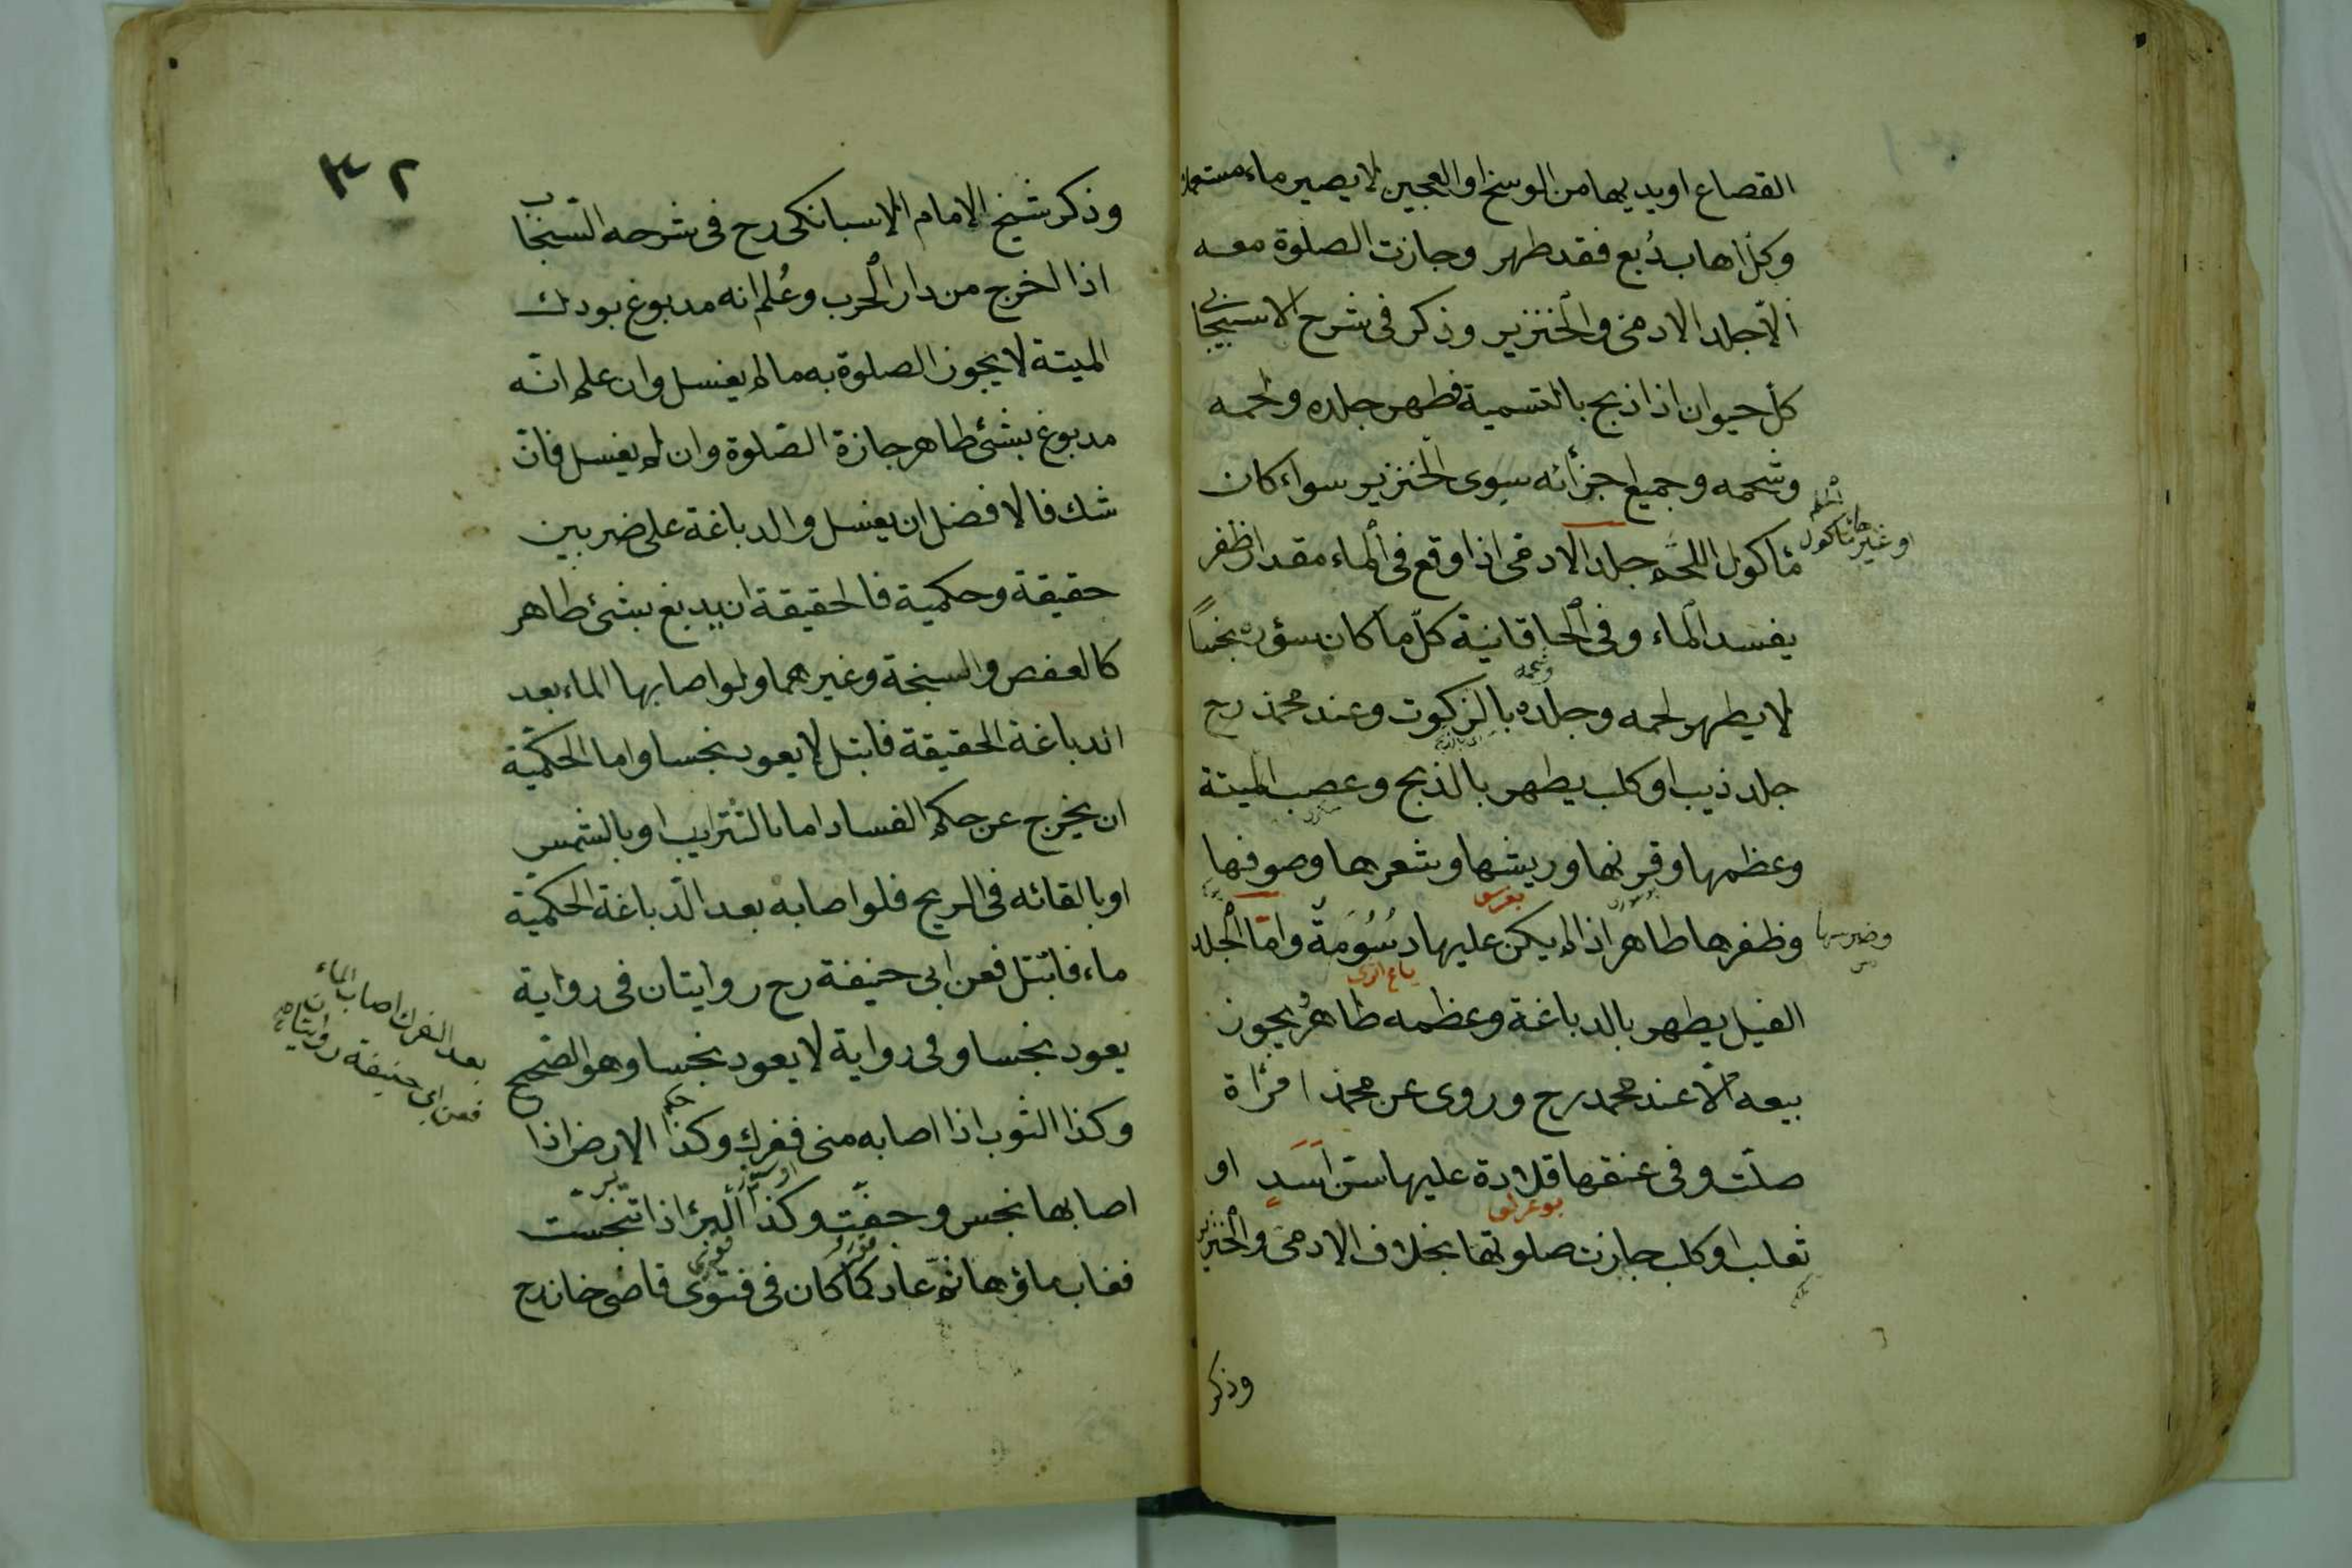 القصاع او يديها من الوسخ او العجين لا يصير ماء مستعملا
وكل اهاب دُبع فقد طهر وجازت الصلوة معه
الّا جلد الادمى والخنزير وذكر فى شرح الاسبيجابى
كلّ حيوان اذا ذبح بالتسمية فطهر جلده ولحمه
وشحمه وجميع اجزأئه سوى الخنزير سواء كان
مأكول اللحم جلد الادمى اذا وقع فى الماء مقدار ظفر
او غير مأكول
يفسد الماء وفى الخاقانية كلّ ما كان سؤره نجسًا
لا يطهر لحمه وجلده بالزكوت وعند محمد رح
وشحمه
جلد ذيب او كلب يطهر بالذبح وعصب الميتة
وعظمها وقرنها وريشها وشعرها وصوفها
وظفرها طاهر اذا لم يكن عليها دسُومَةٌ وامّا الجلد
وضرسها
الفيل يطهر بالدباغة وعظمه طاهرٌ يجوز
بيعه الّا عند محمد رح وروى عن محمد امرأة
صلّت وفى عنقها قلادة عليها سن اَسَدٍ او
ثعلب او كلب جازت صلوتها بخلاف الادمى والخنزير
وذكر
٣٢
وذكر شيخ الامام الاسبانكى رح فى شرحه السنجاب
اذا اخرج من دار الحرب وعُلم انه مدبوغ بودك
الميتة لا يجوز الصلوة به مالم يغسل وان علم انّه
مدبوغ بشئ طاهر جازة الصّلوة وان لم يغسل فان
شك فالافضل ان يغسل والدباغة على ضربين
حقيقة وحكمية فالحقيقة ان يدبغ بشئ طاهر
كالعفص والسبخة وغيرهما ولو اصابها الماء بعد
الدباغة الحقيقة فابتل لا يعود نجسا واما الحكميّة
ان يخرج عن حكم الفساد اما بالتتريب او بالشمس
او بالقائه فى الريح فلو اصابه بعد الدّباغة الحكميّة
ماء فابتل فعن ابى حنيفة رح روايتان فى رواية
يعود نجسا وفى رواية لا يعود نجسا وهو الصّحيح
وكذا الثوب اذا اصابه منى ففرك وكذا الارض اذا
حكم
بعد الفرك اصاب الماء
فعن ابى حنيفة روايتان
اصابها نجس وجفّت وكذا البئر اذا تنجّست
فغاب ماؤها ثمّ عاد كما كان فى فتوى قاضى خان رح